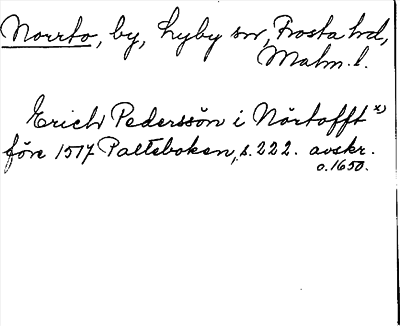 Norrto, by, Lyby sn, Frosta hd,
Malm. l.
Erich Pederssön i Nörtofft x)
före 1517 Palteboken, s. 222. avskr.
o. 1650.